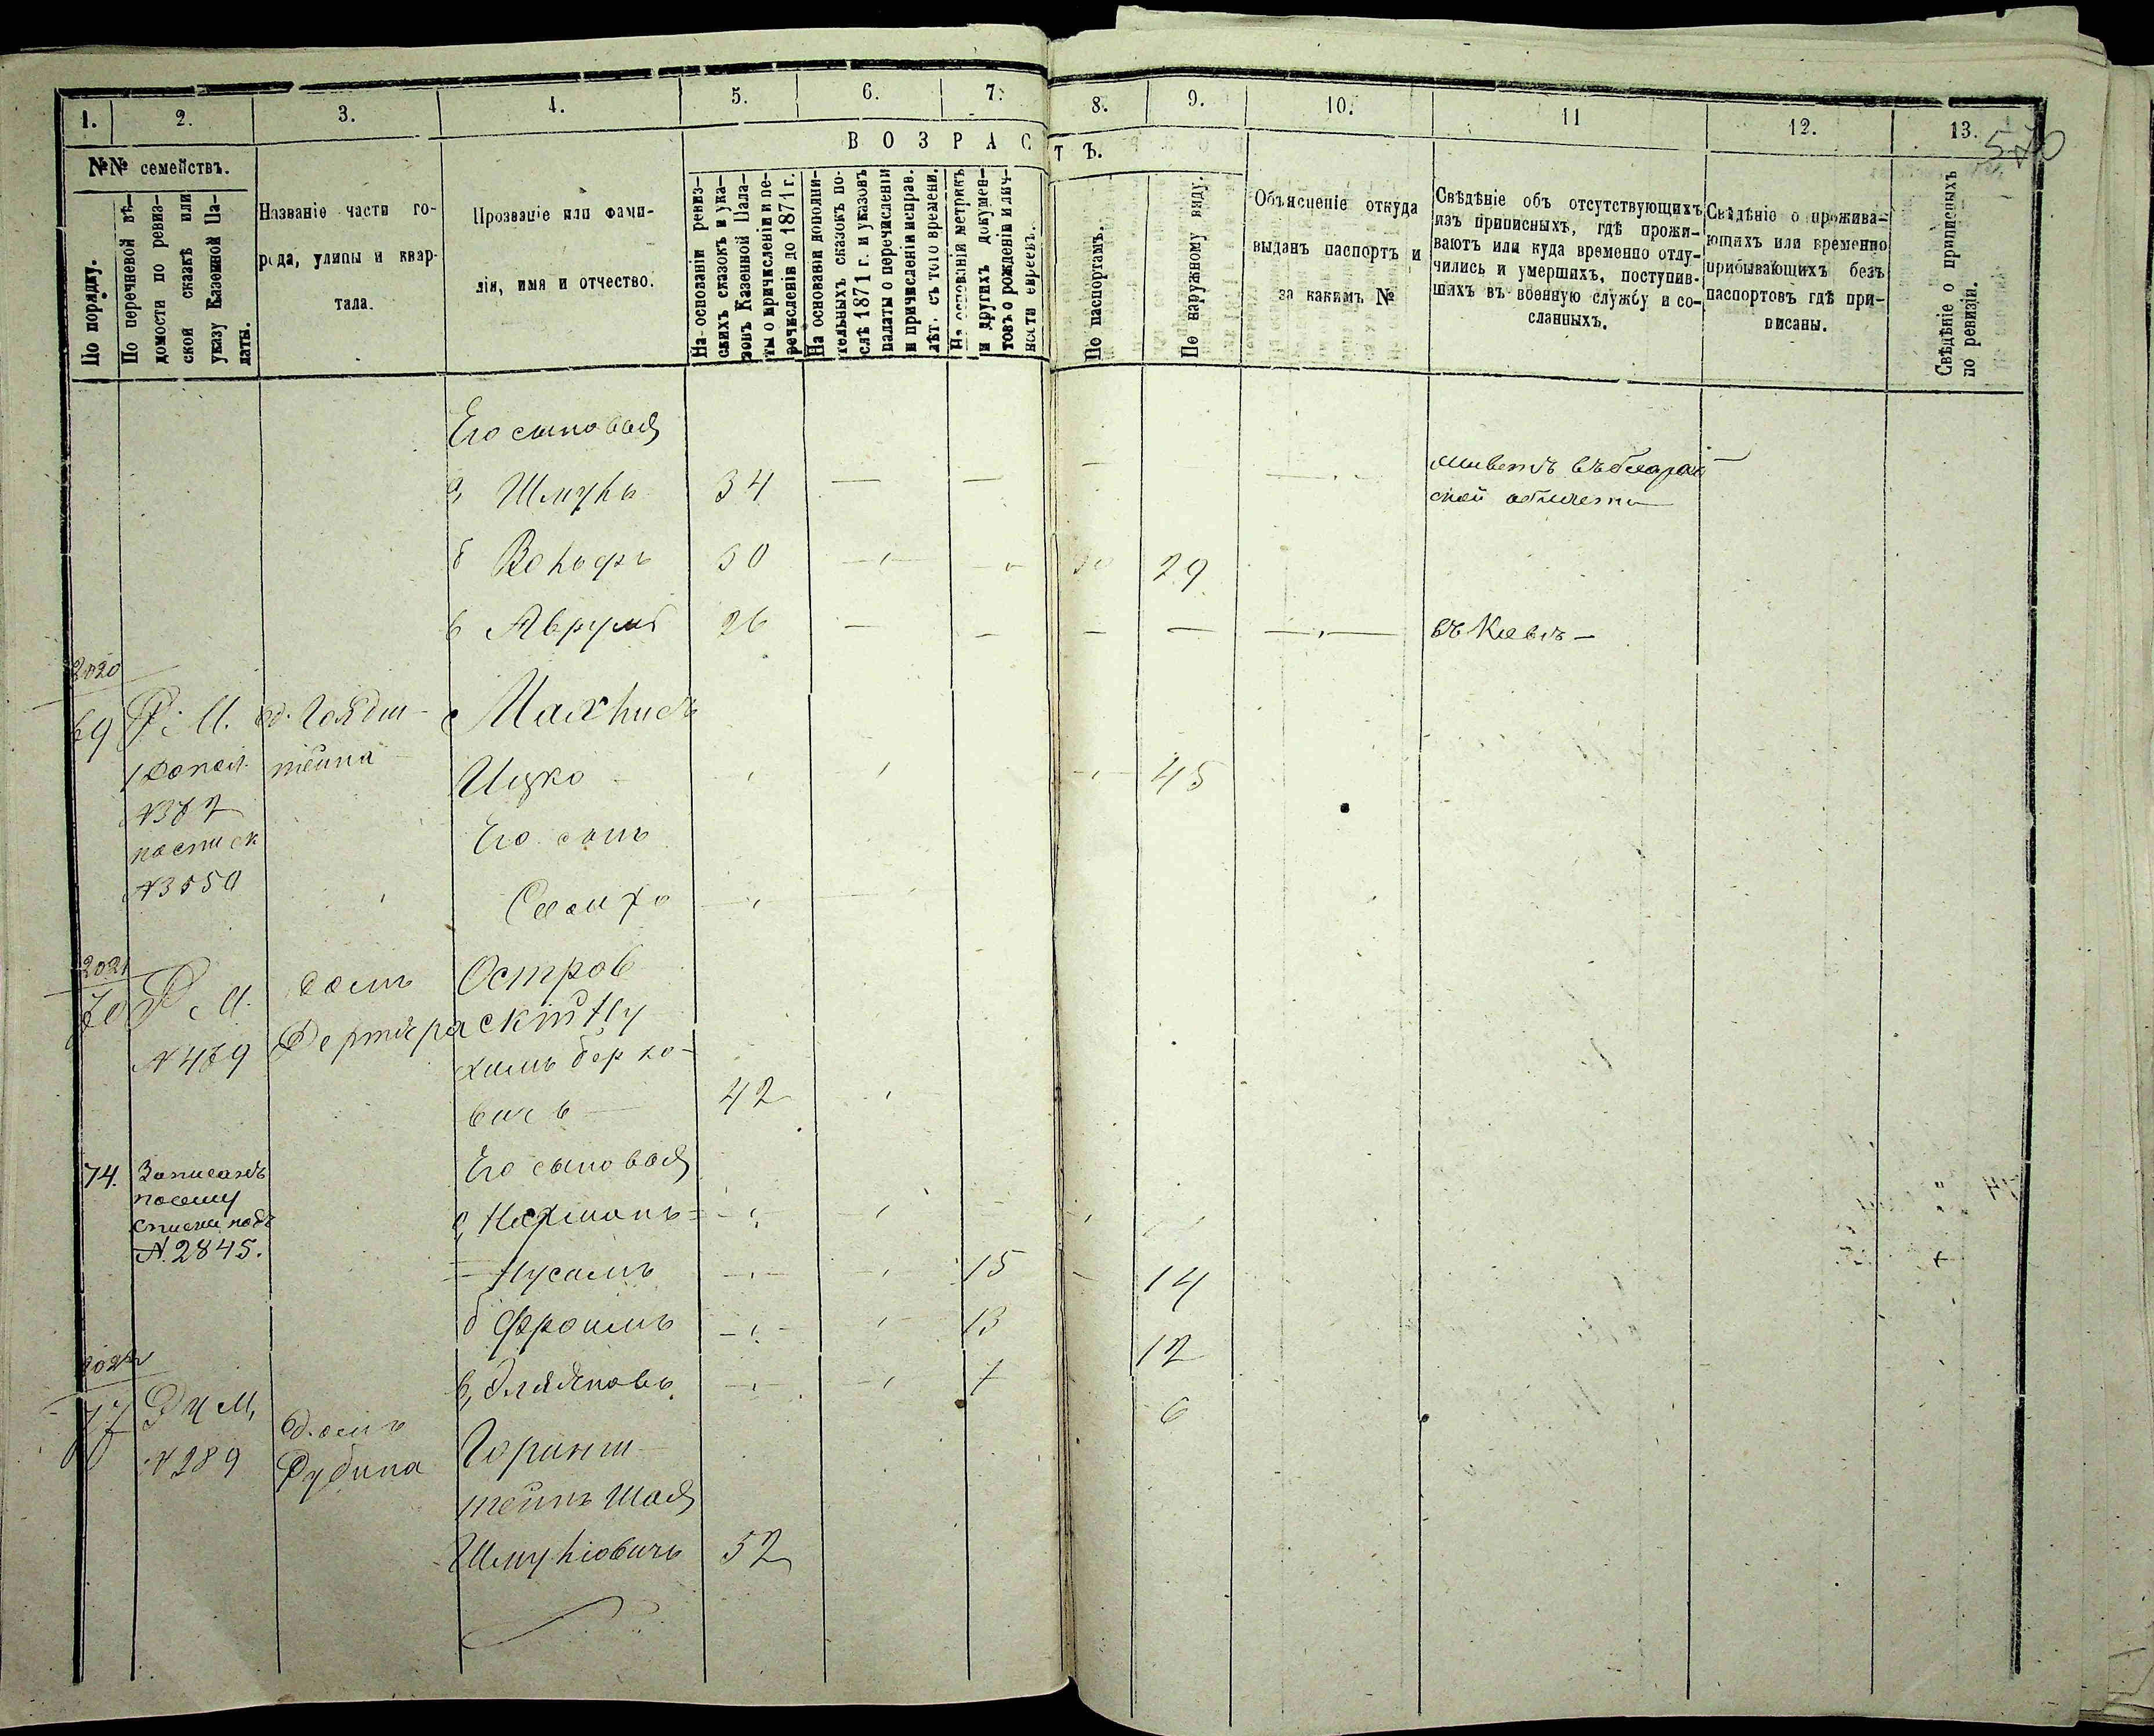 1. 2. 3. 4. 5. 6. 7. 8. 9. 10. 11 12. 13.
570
ВОЗРАСТЪ.
№№ семействъ.
По порядку.
По перечневой вѣ-
домости по ревиз-
ской сказкѣ или
указу Казенной Па-
латы.
Названіе части го-
рода, улицы и квар-
тала.
Прозваніе или фами-
лія, имя и отчество.
На основаніи ревиз-
скихъ сказокъ и ука-
зовъ Казенной Пала-
ты о причисленіи и пе-
речисленіи до 1871 г.
На основаніи дополни-
тельныхъ сказокъ по-
слѣ 1871 г. и указовъ
палаты о перечисленіи
и причисленіи исправ.
лѣт. съ того времени.
На основаніи метрикъ
и другихъ докумен-
товъ о рожденіи и лич-
ности евреевъ.
По паспортамъ.
По наружному виду.
Объясненіе откуда
выданъ паспортъ и
за какимъ №
Свѣдѣніе объ отсутствующихъ
изъ приписныхъ, гдѣ прожи-
ваютъ или куда временно отлу-
чились и умершихъ, поступив-
шихъ въ военную службу и со-
сланныхъ.
Свѣдѣніе о прожива-
ющихъ или временно
прибывающихъ безъ
паспортовъ гдѣ при-
писаны.
Свѣдѣніе о приписныхъ
по ревизіи.
Его сыновья
а, Шмуль 34 — —
живетъ въ
ской области
б Вольфъ 30 29
в Аврумъ 26 — — — — въ Кіевѣ —
2020
69 Р. М. д. Гольдш-
тейна
1 Допол.
№ 387
по списк
№ 3550
Ицко 45
Его сынъ
Симхо
2021
70 Р. М. домъ Остров
№ 479 скій Ну
химъ Берко-
вичъ — 42
Его сыновья
74. Записанъ
по сему
списку подъ
№ 2845.
а, Нахманъ
Нусимъ 15 14
б Фроимъ 13 12
в, 7 6
2022
77 Р И М,
№ 289
домъ
Рубина
Горинш-
тейнъ Шая
Шмуліовичъ 52